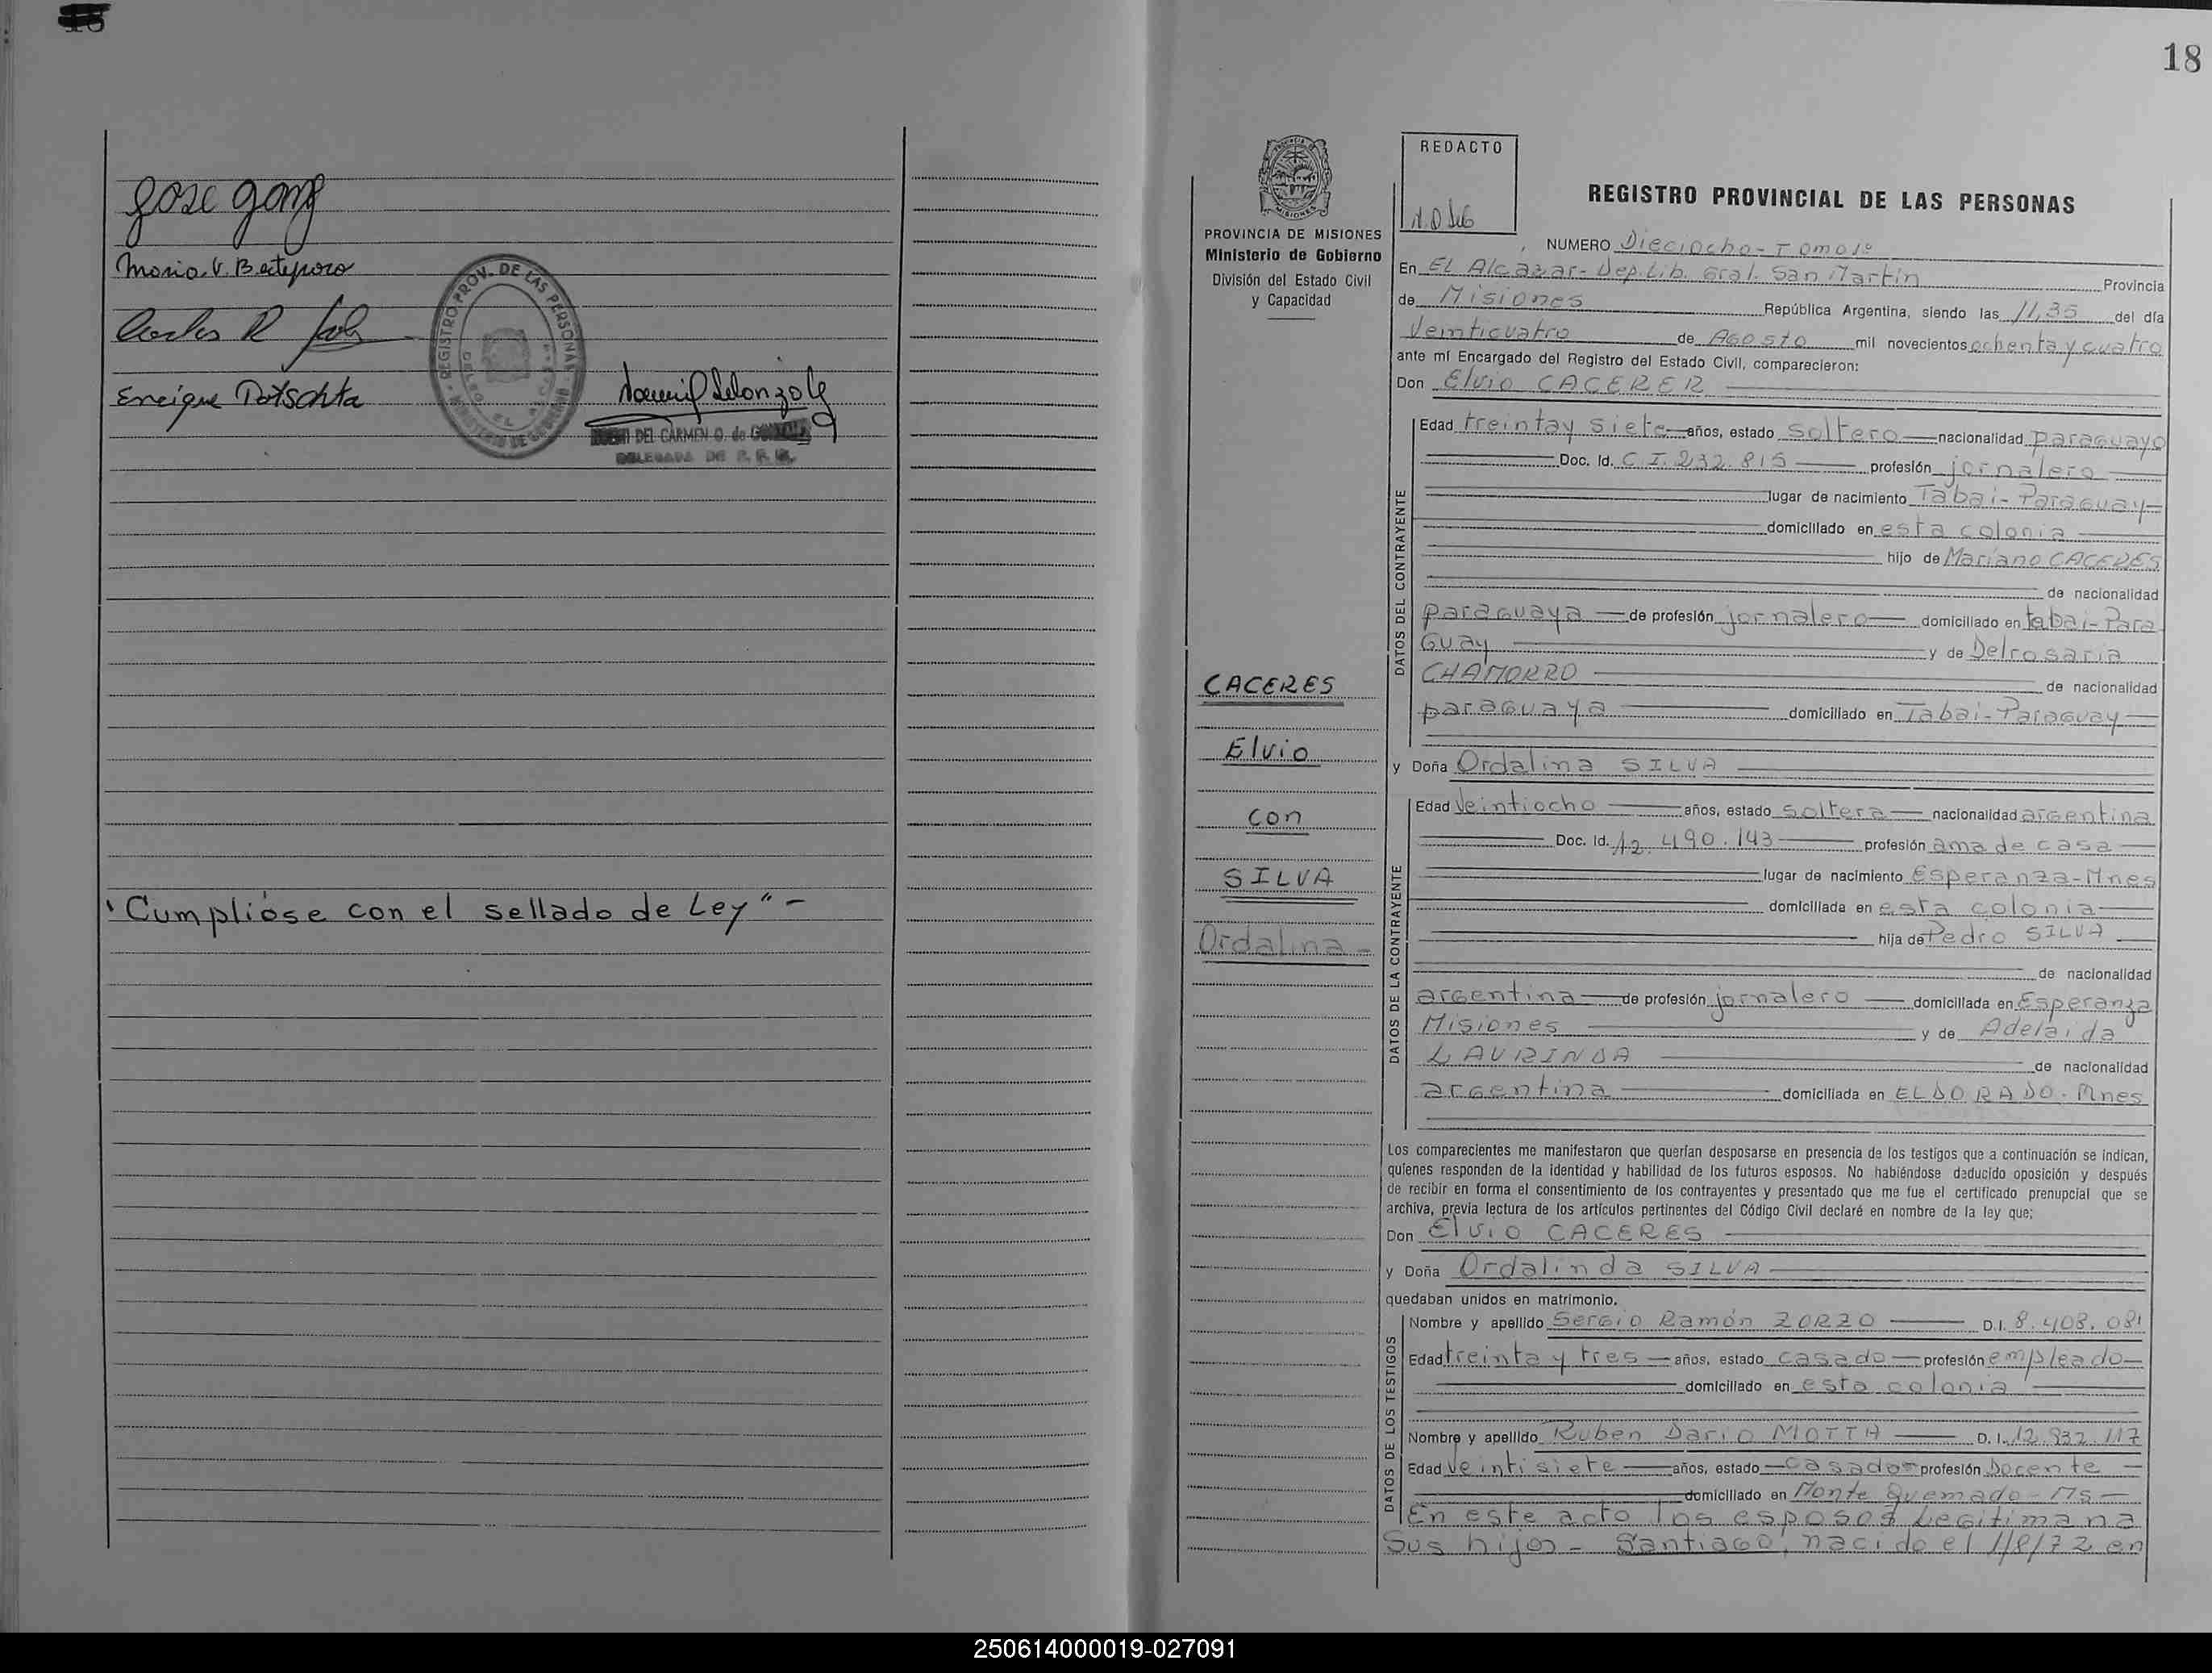 18
Jose Gomz
Maria. V. Bertepozo
Carlos R
Enrique Potschta
REGISTRO PROV. DE LAS PERSONAS
MINISTERIO DE GOBIERNO
DEL CARMEN O. de
DELEGADA DE R. P.
"Cumplióse con el sellado de Ley" -
18
REDACTO
PROVINCIA DE MISIONES
Ministerio de Gobierno
División del Estado Civil
y Capacidad
CACERES
Elvio
con
SILVA
Ordalina -
REGISTRO PROVINCIAL DE LAS PERSONAS
NUMERO Dieciocho - Tomo 1º
En EL Alcazar - Dep. Lib. Gral. San Martin Provincia
de Misiones República Argentina, siendo las 11,35 del día
Veinticuatro de Agosto mil novecientos ochenta y cuatro
ante mí Encargado del Registro del Estado Civil, comparecieron:
Don Elvio CACERER
DATOS DEL CONTRAYENTE
Edad treinta y siete años, estado soltero nacionalidad paraguayo
Doc. Id. C.I. 232.815 profesión jornalero
lugar de nacimiento Tabai - Paraguay
domiciliado en esta colonia
hijo de Mariano CACERES
de nacionalidad
paraguaya de profesión jornalero domiciliado en tabai - Para
Guay y de Delrosaria
CHAMORRO de nacionalidad
paraguaya domiciliado en Tabai - Paraguay
y Doña Ordalina SILVA
DATOS DE LA CONTRAYENTE
Edad Veintiocho años, estado soltera nacionalidad argentina
Doc. Id. 12.490.143 profesión ama de casa
lugar de nacimiento Esperanza - Mnes
domiciliada en esta colonia
hija de Pedro SILVA
de nacionalidad
argentina de profesión jornalero domiciliada en Esperanza
Misiones y de Adelaida
LAURINDA de nacionalidad
argentina domiciliada en ELDORADO - Mnes
Los comparecientes me manifestaron que querían desposarse en presencia de los testigos que a continuación se indican,
quienes responden de la identidad y habilidad de los futuros esposos. No habiéndose deducido oposición y después
de recibir en forma el consentimiento de los contrayentes y presentado que me fue el certificado prenupcial que se
archiva, previa lectura de los artículos pertinentes del Código Civil declaré en nombre de la ley que;
Don Elvio CACERES
y Doña Ordalinda SILVA
quedaban unidos en matrimonio.
DATOS DE LOS TESTIGOS
Nombre y apellido Sergio Ramón ZORZO D.I. 8.408.081
Edad treinta y tres años, estado casado profesión empleado
domiciliado en esta colonia
Nombre y apellido Ruben Dario MOTTA D.I. 12.932.117
Edad Veintisiete años, estado casado profesión Docente
domiciliado en Monte Quemado - Ms -
En este acto los esposos Legitiman a
Sus hijos - Santiago, nacido el 1/8/72 en
250614000019-027091